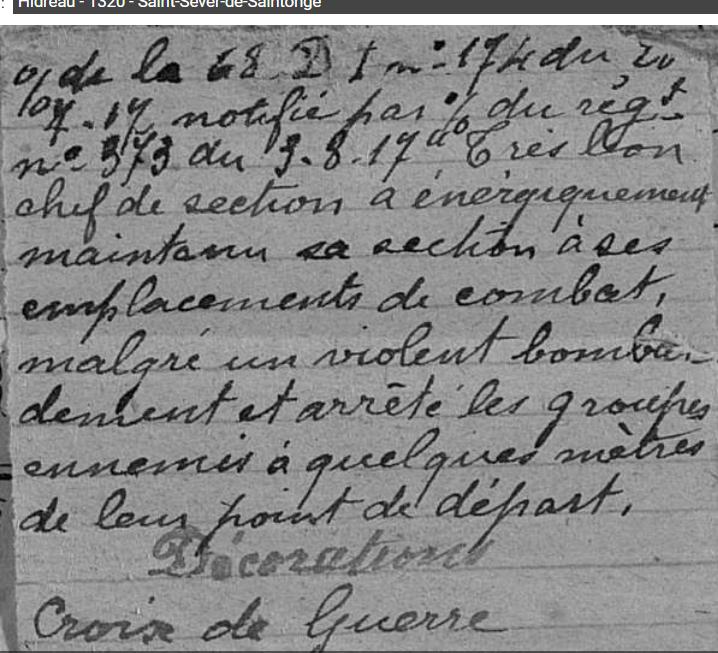 Hidreau - 1320 - Saint-Sever-de-Saintonge
% de la 68 D I nº 174 du 20
7.17, notifié par % du régt
nº 373 du 3.8.17 "Très bon
chef de section a énergiquement
maintenu sa section à ses
emplacements de combat,
malgré un violent bombar-
dement et arrêté les groupes
ennemis à quelques mètres
de leur point de départ.
Décorations
Croix de Guerre